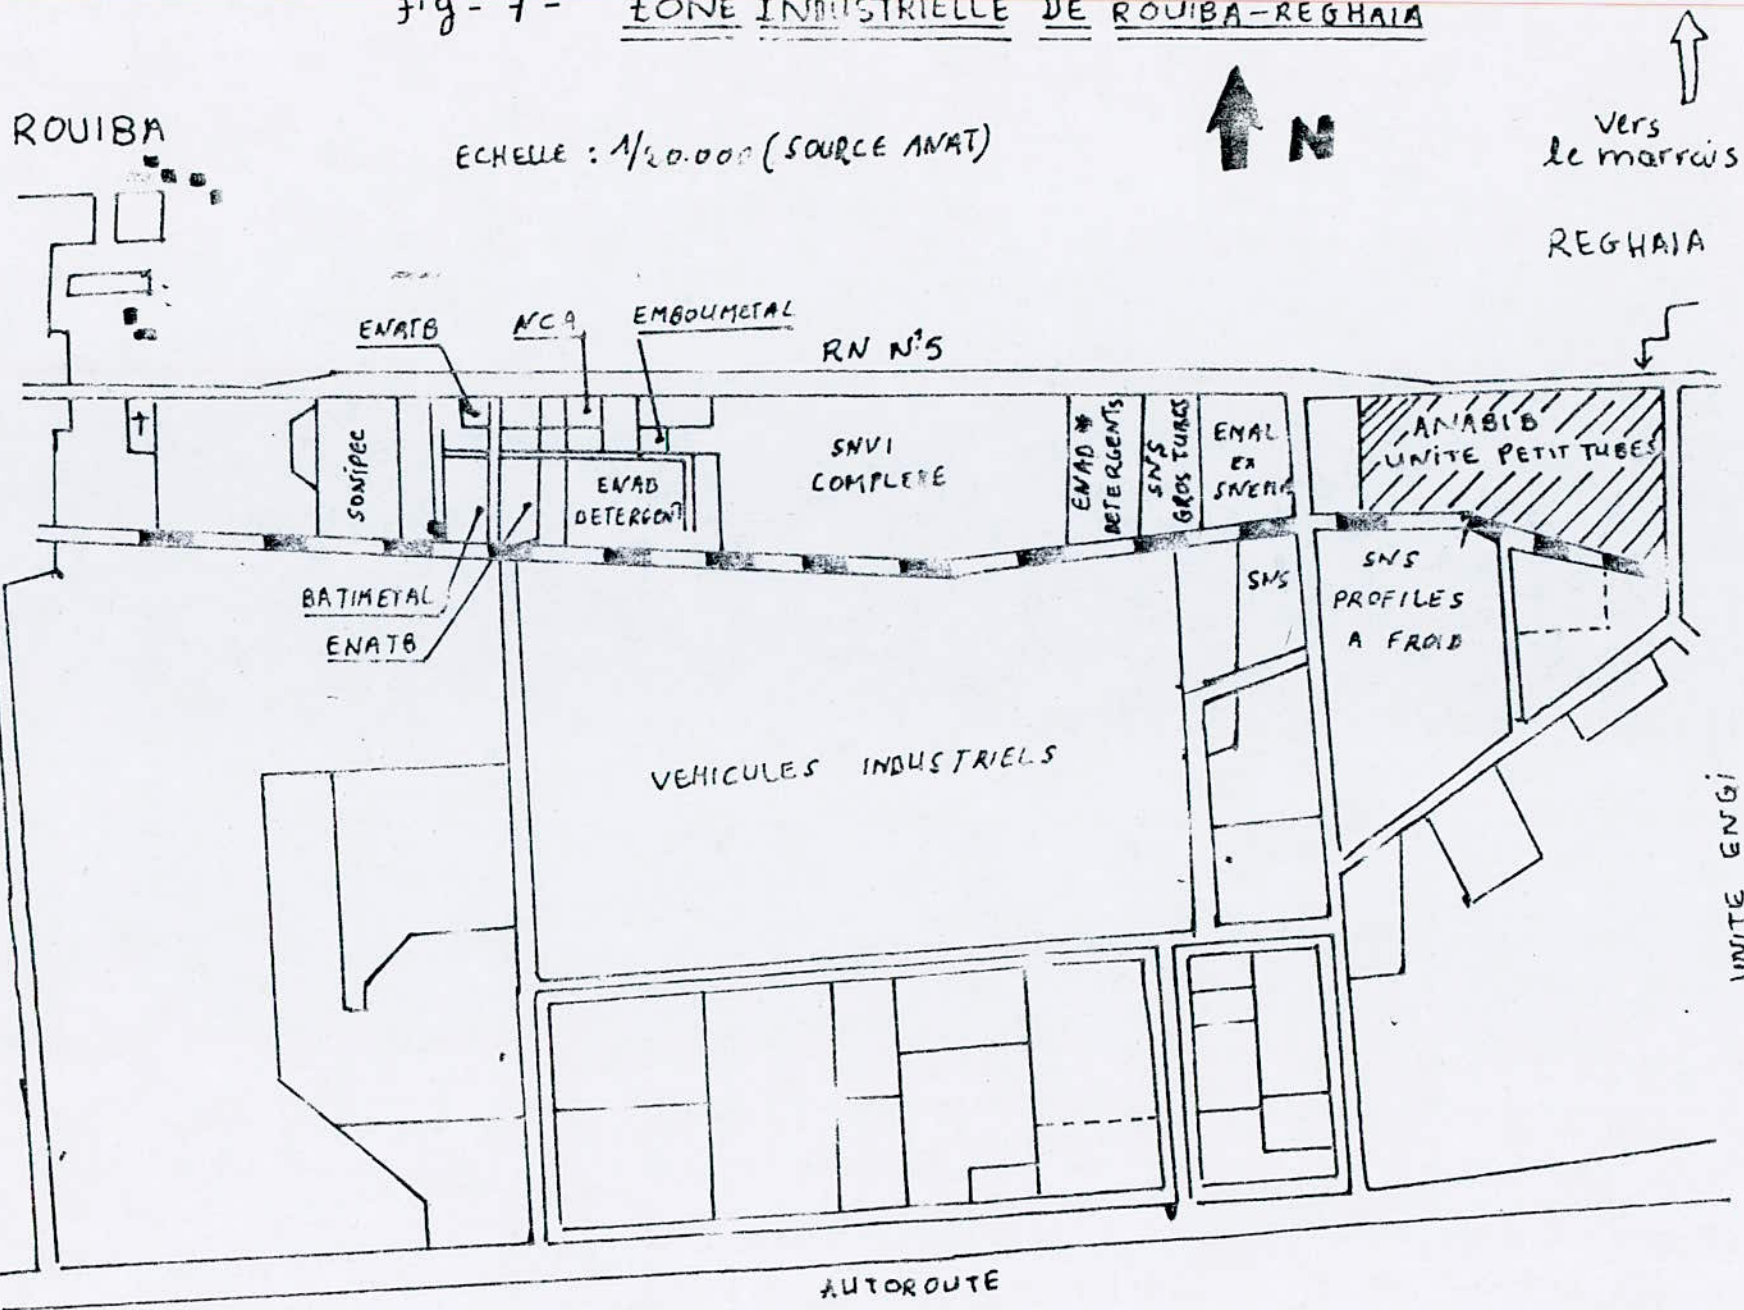 fig - 7 - ZONE INDUSTRIELLE DE ROUIBA-REGHAIA
ROUIBA
ECHELLE : 1/20.000 (SOURCE ANAT)
N
vers
le marrais
REGHAIA
ENATB
NCA
EMBOUMETAL
RN N°5
SONIPEC
ENAD
DETERGENT
SNVI
COMPLEXE
ENAD *
DETERGENTS
SNS
GROS TUBES
EMAL
EX
ANABIB
UNITE PETIT TUBES
BATIMETAL
ENATB
SNS
SNS
PROFILES
A FROID
VEHICULES INDUSTRIELS
UNITE ENGI
AUTOROUTE